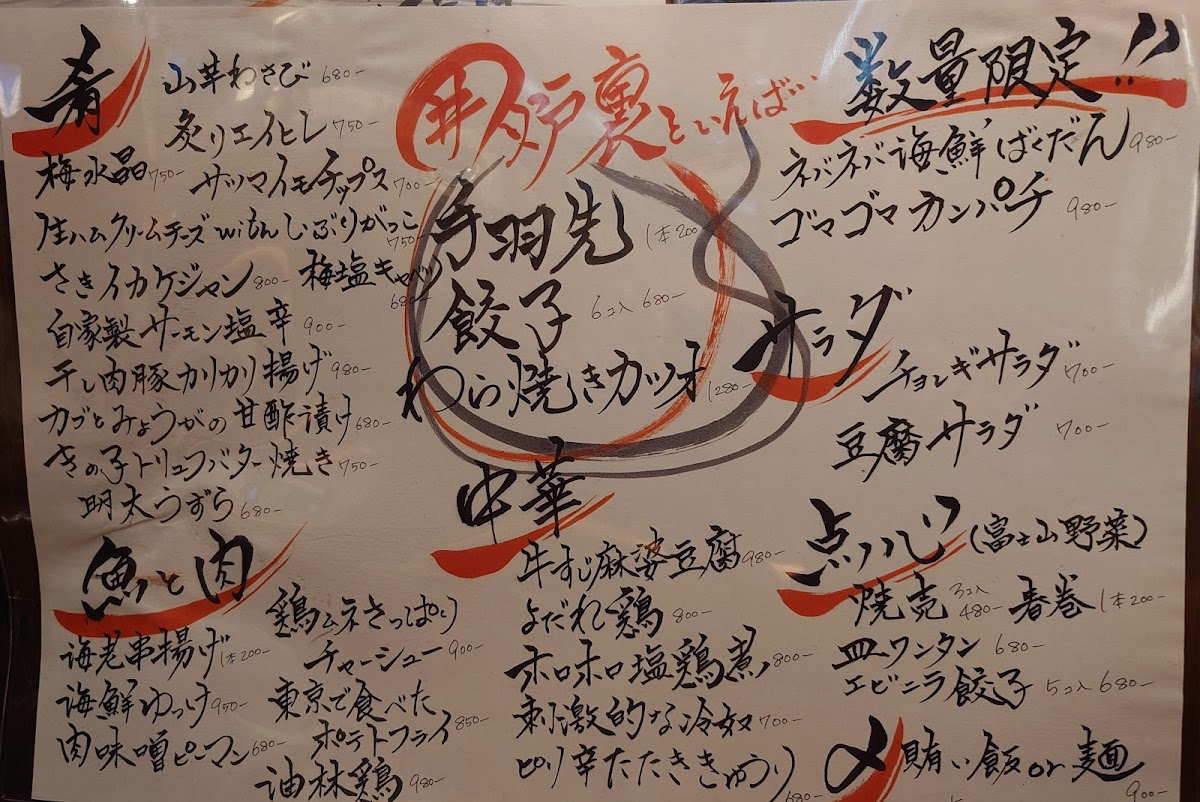 肴
山芋わさび 680-
炙りエイヒレ 750-
梅水晶 750- サツマイモチップス 700-
生ハムクリームチーズ with いぶりがっこ 750-
さきイカケジャン 800- 梅塩キャベツ 680-
自家製サーモン塩辛 900-
干し肉豚カリカリ揚げ 980-
カブとみょうがの甘酢漬け 680-
きの子トリュフバター焼き 750-
明太うずら 680-
魚と肉
海老串揚げ 1本200-
海鮮ゆっけ 950-
肉味噌ピーマン 680-
鶏ムネさっぱり
チャーシュー 900-
東京で食べた
ポテトフライ 850-
油林鶏 980-
井炉裏といえば…
手羽先 1本200-
餃子 6コ入 680-
わら焼きカツオ 1280-
中華
牛すじ麻婆豆腐 980-
よだれ鶏 800-
ホロホロ塩鶏煮 800-
刺激的な冷奴 700-
ピリ辛たたききゅうり 680-
数量限定!!
ネバネバ海鮮ばくだん 980-
ゴマゴマカンパチ 980-
サラダ
チョレギサラダ 700-
豆腐サラダ 700-
点心 (富士山野菜)
焼売 3コ入 480- 春巻 1本200-
皿ワンタン 680-
エビニラ餃子 5コ入 680-
〆 賄い飯or麺 900-